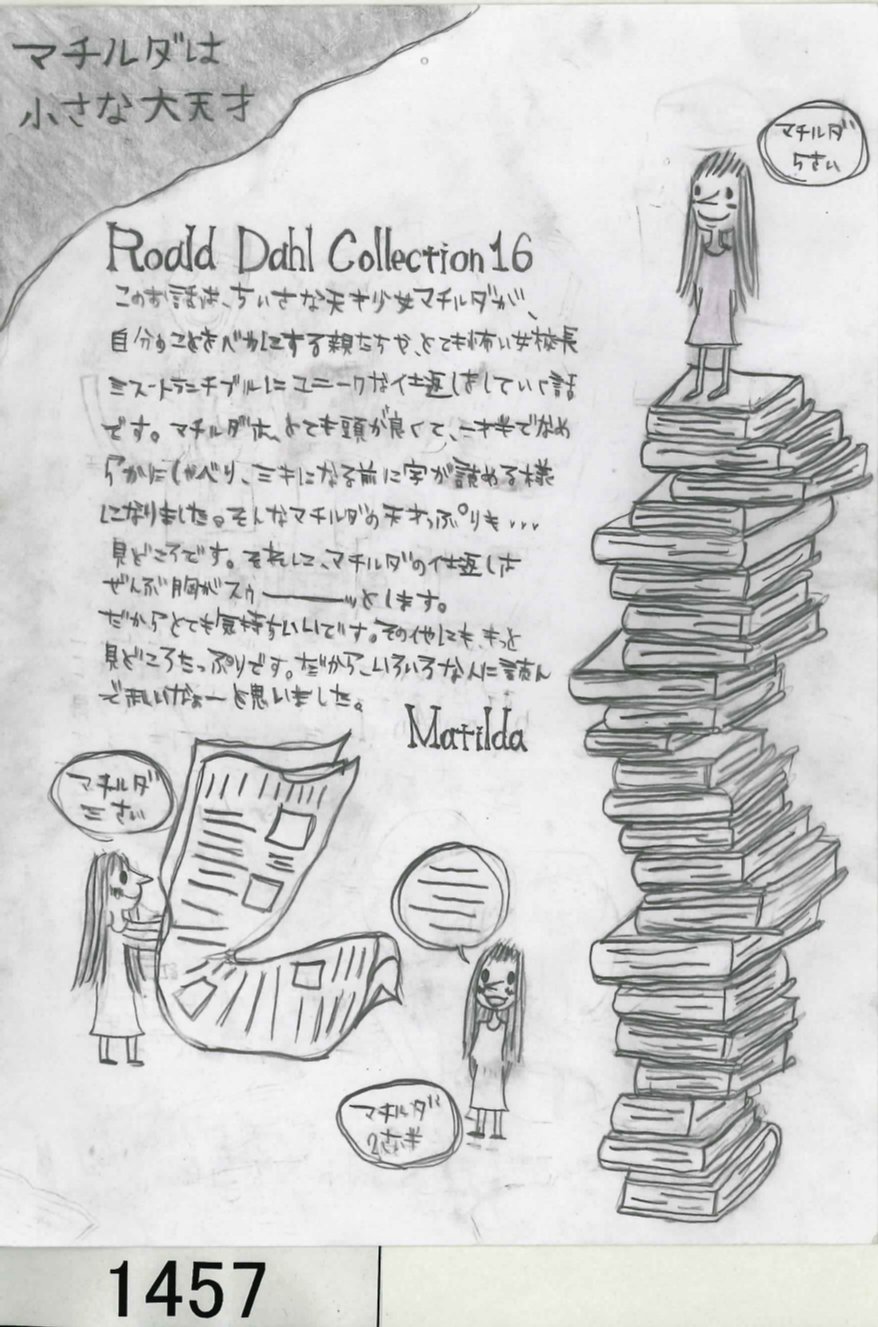 マチルダは
小さな大天才
マチルダ
5さい
Roald Dahl Collection 16
このお話は、ちいさな天才少女マチルダが、
自分のことをバカにする親たちや、とても怖い女校長
ミス・トランチブルにユニークな仕返しをしていく話
です。マチルダは、とても頭が良くて、一才半でなめ
らかにしゃべり、三才になる前に字が読める様
になりました。そんなマチルダの天才っぷりも・・・
見どころです。そして、マチルダの仕返しは
ぜんぶ胸がスゥーーーッとします。
だからとても気持ちいいです。その他にも、きっと
見どころたっぷりです。だから、いろいろな人に読ん
でほしいなぁーと思いました。
Matilda
マチルダ
三さい
マチルダ
2さい半
1457